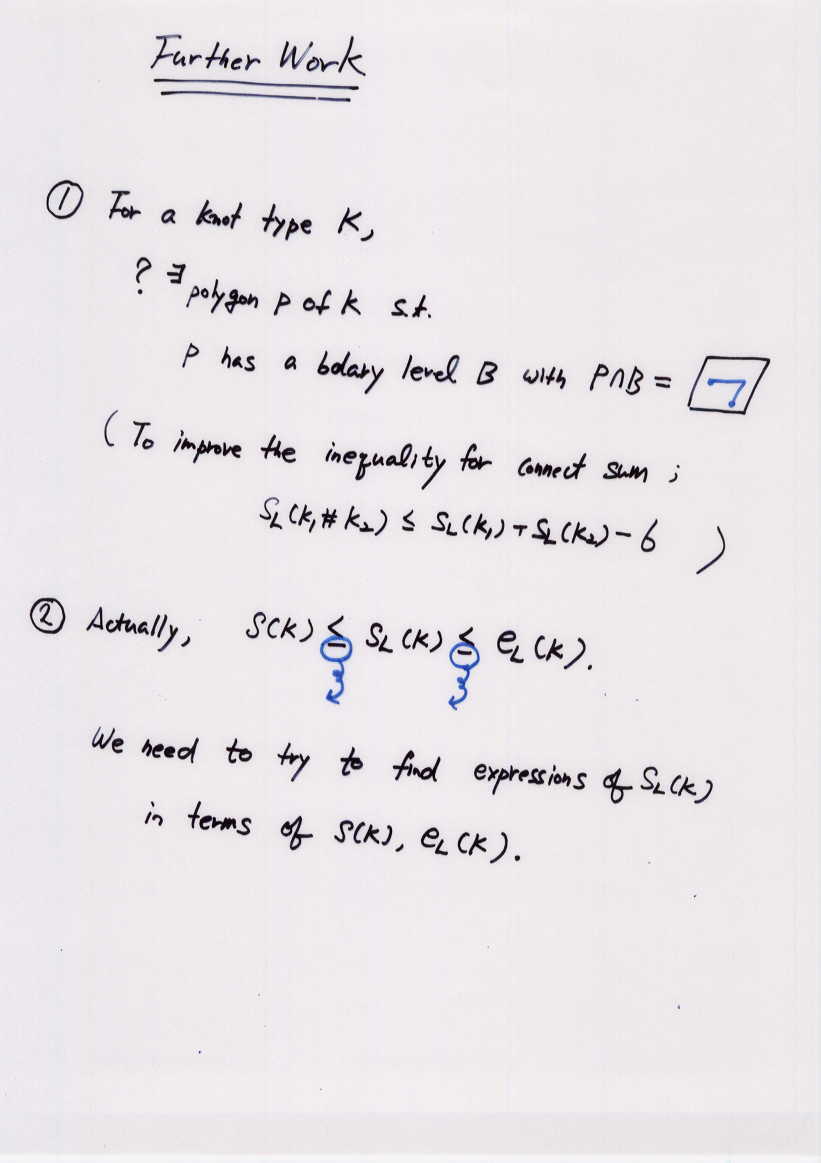 Further Work
① For a knot type K,
? ∃ polygon P of K s.t.
P has a bdary level B with P∩B =
( To improve the inequality for connect sum ;
S_L(K₁#K₂) ≤ S_L(K₁) + S_L(K₂) - 6 )
② Actually, S(K) ≤ S_L(K) ≤ e_L(K).
We need to try to find expressions of S_L(K)
in terms of S(K), e_L(K).